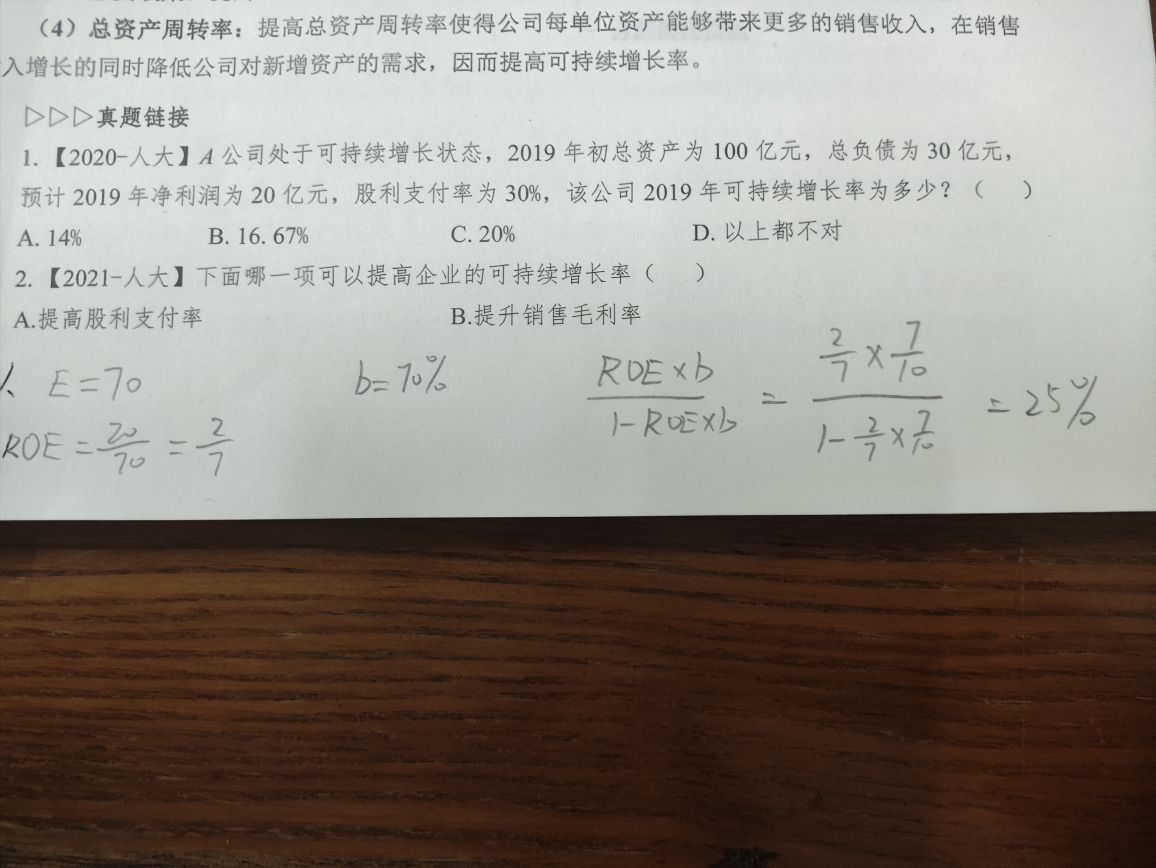 (4) 总资产周转率：提高总资产周转率使得公司每单位资产能够带来更多的销售收入，在销售
入增长的同时降低公司对新增资产的需求，因而提高可持续增长率。
▷▷▷真题链接
1.【2020-人大】A 公司处于可持续增长状态，2019 年初总资产为 100 亿元，总负债为 30 亿元，
预计 2019 年净利润为 20 亿元，股利支付率为 30%，该公司 2019 年可持续增长率为多少？（ ）
A. 14% B. 16. 67% C. 20% D. 以上都不对
2.【2021-人大】下面哪一项可以提高企业的可持续增长率（ ）
A.提高股利支付率 B.提升销售毛利率
1、 E=70 b=70% ROE×b / 1-ROE×b = 2/7 × 7/10 / 1- 2/7 × 7/10 = 25%
ROE = 20/70 = 2/7